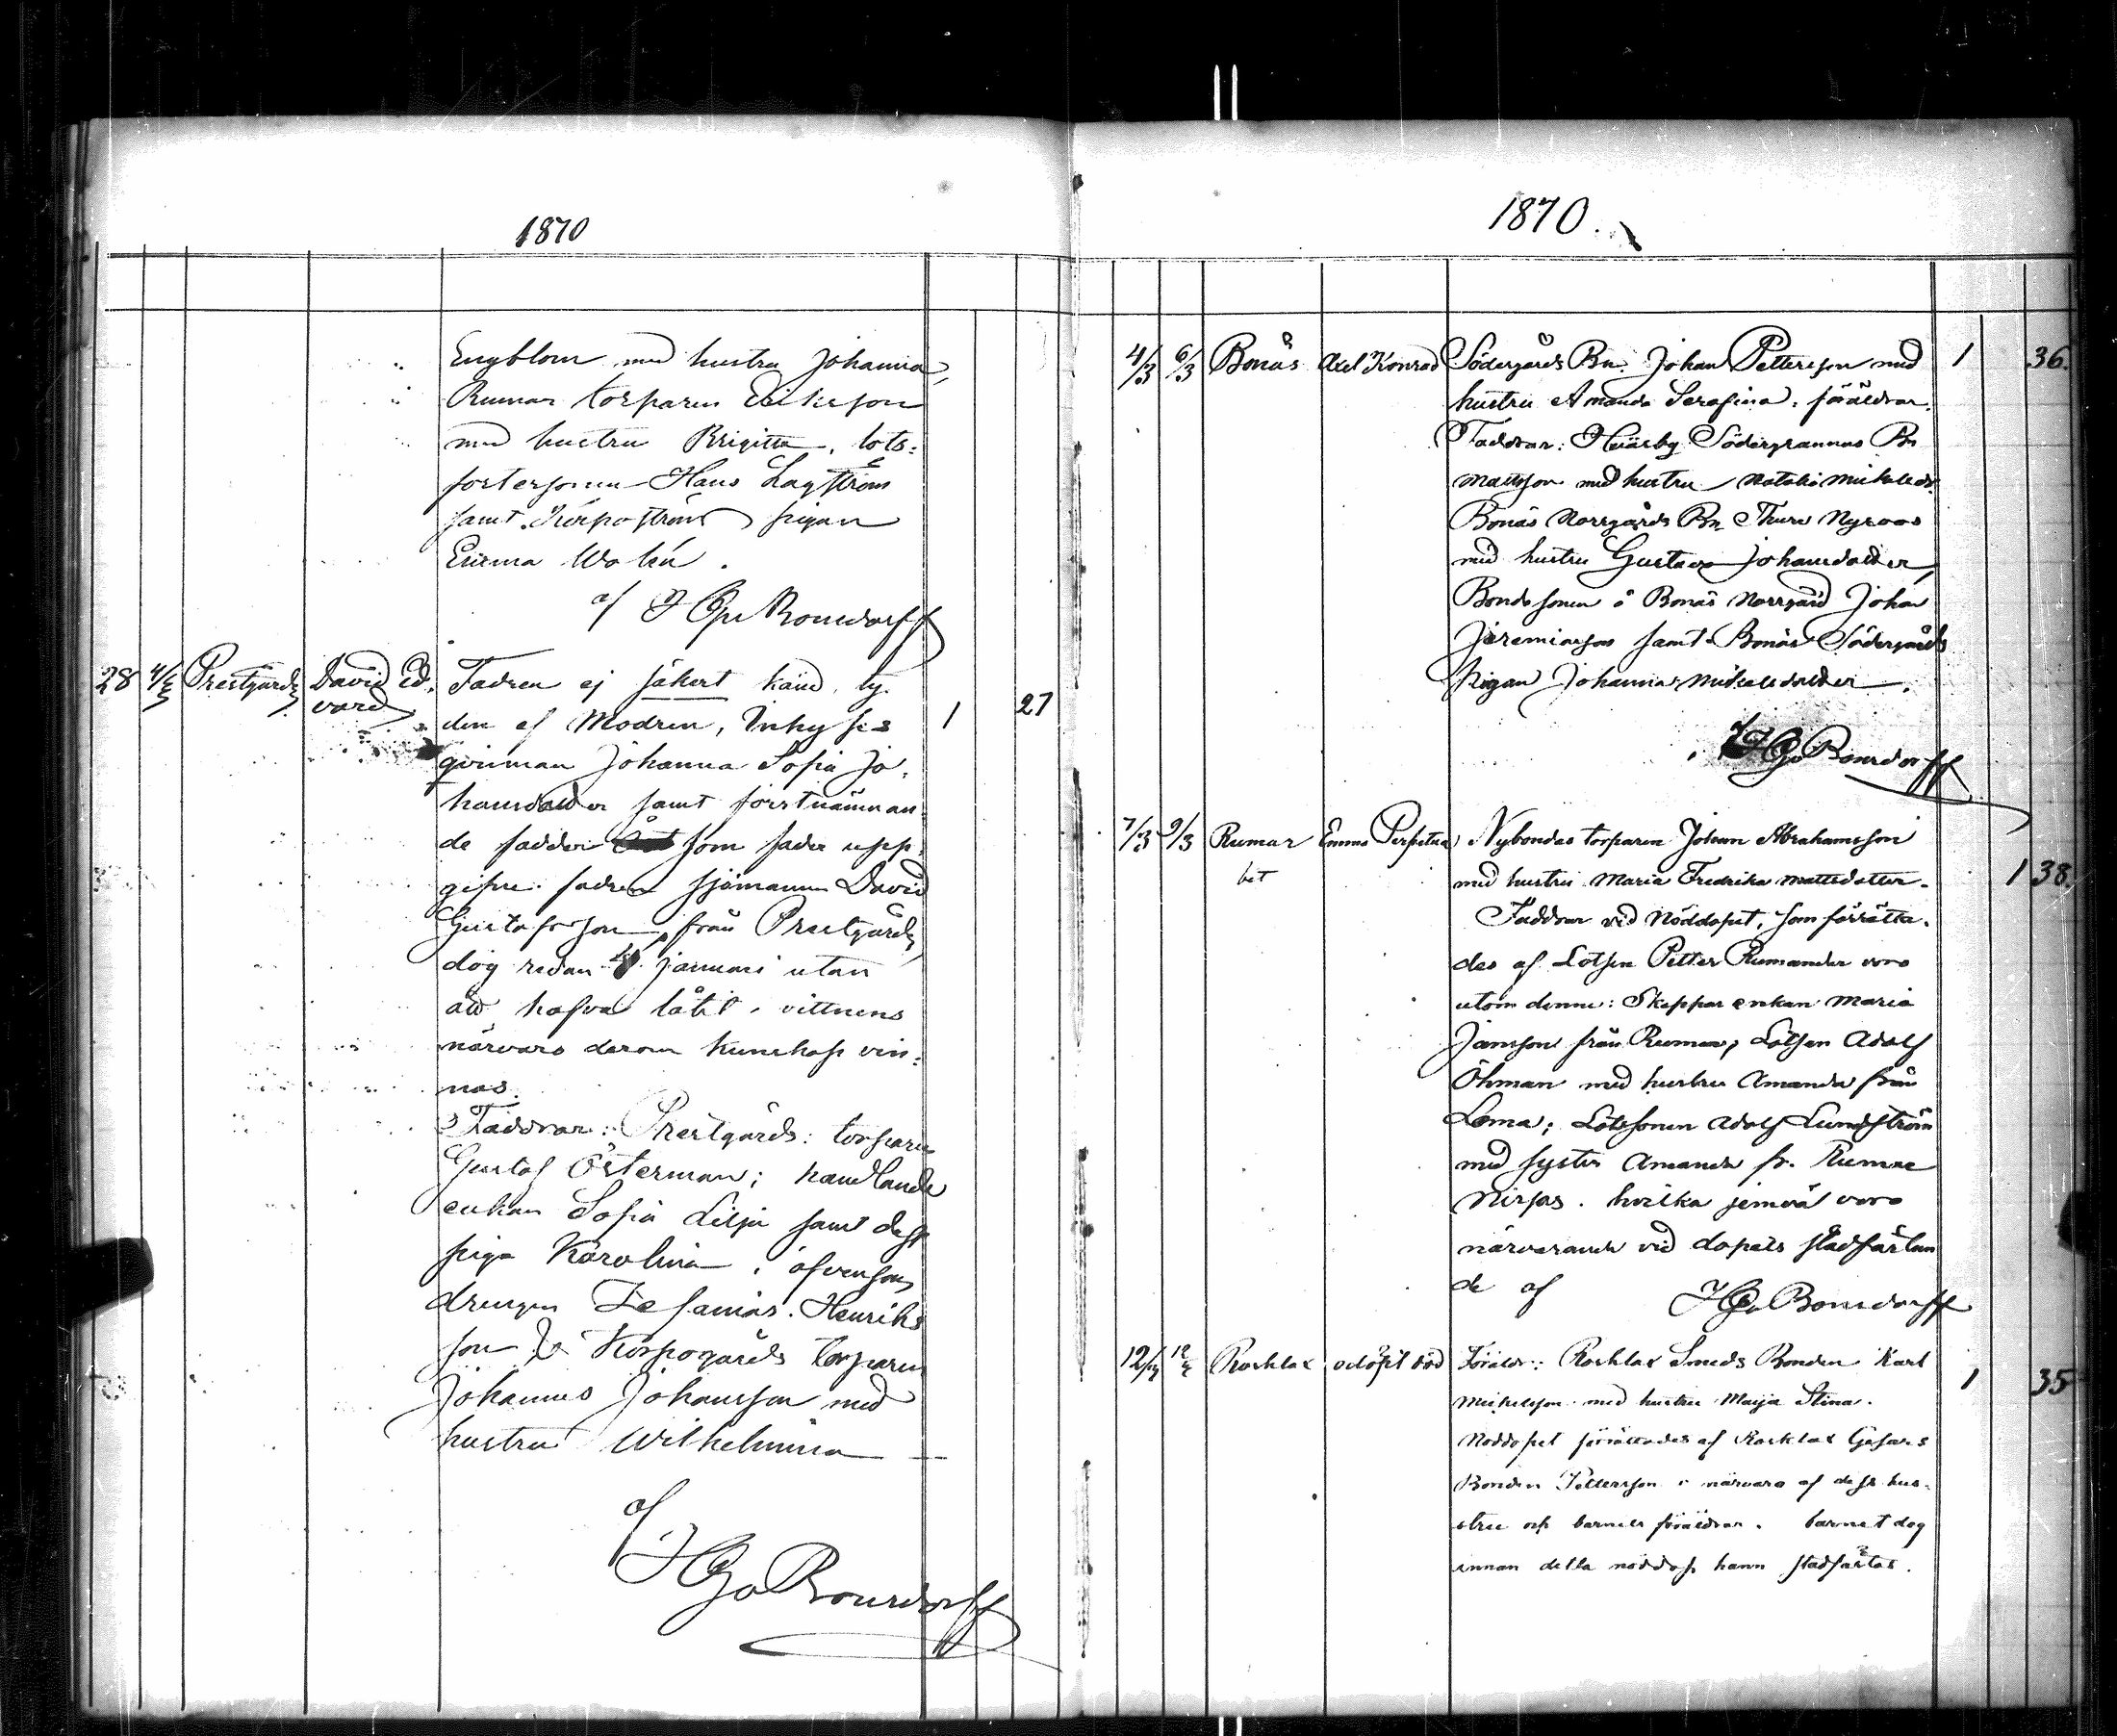 1870
Engblom med hustru Johanna,
Rumar torparen Erikson
med hustru Brigitta, lots-
fostersonen Hans Lagström
samt Korpoström pigan
Emma Walén.
af
Bonsdorff
28 4/3 Prestgårds David Ed- Fadren ej säkert känd, ty
vard den af Modren, Inhyses
1 27
qvinnan Johanna Sofia Jo-
hansdotter samt förstnämnan-
de faddern som fader upp-
gifne fadren sjömannen David
Gustafsson från Prestgårds
dog redan januari utan
att hafva låtit i vittnens
närvaro derom kunskap vin-
nas.
Faddrar: Prestgårds: torparen
Gustaf Österman; handlande
enkan Sofia Lilja samt dess
piga Karolina, äfvensom
drengen Jesaias Henriks
son Korpogårds torparen
Johannes Johansson med
hustru Wilhelmina
af
Bonsdorff
1870.
4/3 6/3 Bonäs Axel Konrad Södergårds Bn. Johan Pettersson med 1 36.
hustru Amanda Serafina, föräldrar.
Faddrar: Södergrannas Bn
Mattsson med hustru Natalia Mikelsdr.
Bonäs Norrgårds Bn Thure Nyroos
med hustru Gustava Johansdotter,
Bondesonen å Bonäs Norrgård Johan
Jeremiasson samt Bonäs Södergårds
Pigan Johanna Mikelsdotter.
Bonsdorff
7/3 9/3 Rumar Emma Perpetua Nybondas torparen Johan Abrahamsson
bet med hustru Maria Fredrika Mattsdotter. 1 38.
Faddrar vid Nöddopet, som förrätta-
des af Lotsen Petter Rumander voro
utom denne: Skepparenkan Maria
Jansson från Rumar, Lotsen Adolf
Öhman med hustru Amanda från
Loma; Lotssonen Adolf Lundström
med syster Amanda fr. Rumar
Nirsas. hvilka jemväl voro
närvarande vid dopets stadfästan
de af
Bonsdorff
12/3 12/3 Rocklax odöpt död Föräldr: Rocklax Smeds Bonden Karl
1 35
Mickelsson med hustru Maija Stina.
Nöddopet förrättades af Rocklax
Bonden Pettersson i närvaro af dess hus-
tru och barnets föräldrar. barnet dog
innan detta nöddop hann stadfästas.